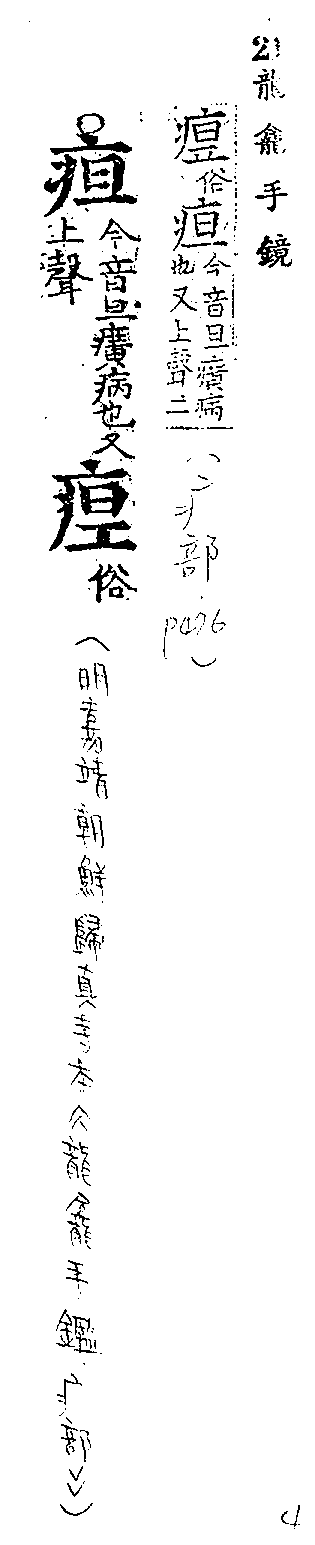 21 龍龕手鏡
俗疸今音旦癀病也又上聲二
（疒部 p476）
疸今音旦癀病也又上聲 俗
（明嘉靖朝鮮歸真寺本《龍龕手鑑·疒部》）
4